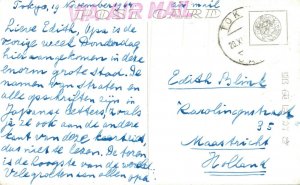 Tokyo, 19 November
air mail
POST CARD
Lieve Edith, Opa is de
vorige week Donderdag
hier aangekomen in deze
enorm grote Stad. De
namen van straten en
alle opschriften zijn in
Japanse letters, zoals
je ook aan de andere
kant van deze
dus niet te lezen. De toren
is de hoogste van de wereld
Veel groeten aan allen opa
TOK
Edith Blink
Karolingenstraat
35
Maastricht
Holland